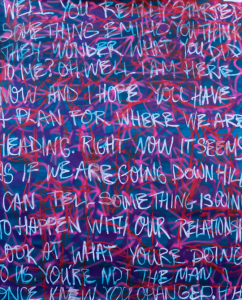 WELL YOU REALLY STARTED
SOMETHING EMILIO. YOU THINK
THEY WONDER WHAT YOU DID
TO ME? OH WELL I AM HERE
NOW AND I HOPE YOU HAVE
A PLAN FOR WHERE WE ARE
HEADING. RIGHT NOW IT SEEMS
AS IF WE ARE GOING DOWN HILL
I CAN TELL SOMETHING IS GOIN
TO HAPPEN WITH OUR RELATIONSH
LOOK AT WHAT YOU'RE DOING
TO US. YOU'RE NOT THE MAN
ONCE KNEW YOU CHANGED.